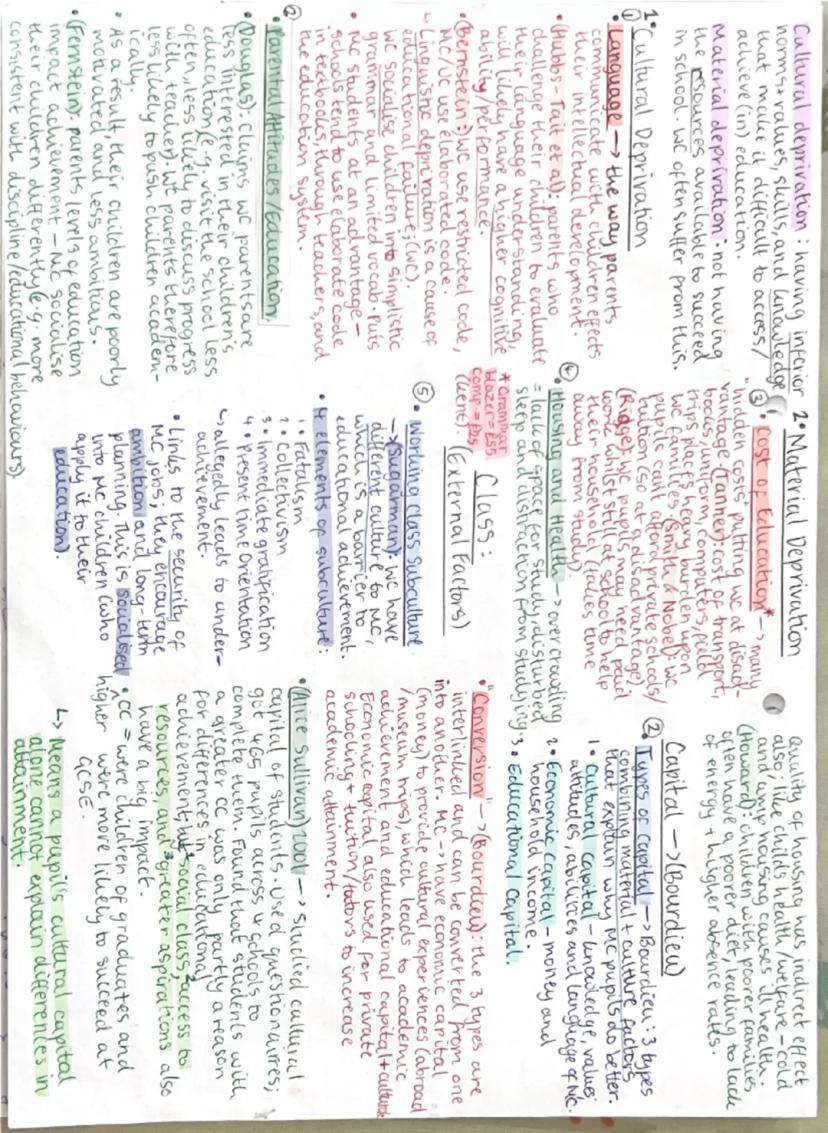 Cultural deprivation: having inferior
norms + values, skills, and knowledge
that make it difficult to access/
achieve (in) education.
Material deprivation: not having
the resources available to succeed
in school. WC often suffer from this.
1• Cultural Deprivation
① • Language → the way parents
communicate with children effects
their intellectual development.
• (Hubbs-Tait et al): parents who
challenge their children to evaluate
their language understanding,
will likely have a higher cognitive
ability/performance.
• (Bernstein:) WC use restricted code,
MC/UC use elaborated code.
↳ Linguistic deprivation is a cause of
educational failure; (WC).
WC socialise children into simplistic
grammar and limited vocab. Puts
MC students at an advantage -
schools tend to use elaborate code
in textbooks, through teachers, and
the education system.
② • Parental Attitudes/Education.
• (Douglas): Claims WC parents are
less interested in their children's
education (e.g. visit the school less
often, less likely to discuss progress
with teacher). WC parents therefore
less likely to push children academ-
ically.
• As a result, their children are poorly
motivated and less ambitious.
• (Feinstein): parents levels of education
impact achievement - MC socialise
their children differently (e.g. more
consistent with discipline/educational behaviours).
2• Material Deprivation
③ • Cost of Education* → many
"hidden costs" putting WC at disad-
vantage (Tanner): cost of transport,
books, uniform, computers, field
trips places heavy burden upon
WC families. (Smith + Noble): WC
pupils can't afford private schools/
tuition (so at a disadvantage).
(Ridge): WC pupils may need paid
work whilst still at school to help
their household (takes time
away from study)
④ • Housing and Health → overcrowding
= lack of space for study, disturbed
sleep and distraction from studying.
* Grammar
blazer = £55
comp = £25
Class:
(External Factors)
⑤ • Working Class Subculture
→ (Sugarman): WC have
different culture to MC,
which is a barrier to
educational achievement.
• 4 elements of subculture:
1• Fatalism
2• Collectivism
3• Immediate gratification
4• Present time Orientation
↳ allegedly leads to under-
achievement.
• Links to the security of
MC jobs; they encourage
ambition and long-term
planning. This is socialised
into MC children (who
apply it to their
education).
Quality of housing has indirect effect
also; like child's health/welfare - cold
and damp housing causes ill health.
(Howard): children with poorer families
often have a poorer diet, leading to lack
of energy + higher absence rates.
② Capital → (Bourdieu)
• Types of capital → Bourdieu: 3 types
combining material + culture factors
that explain why MC pupils do better.
1• Cultural capital - knowledge, values
attitudes, abilities and language of MC.
2• Economic Capital - money and
household income.
3• Educational Capital.
• "Conversion" → (Bourdieu): the 3 types are
interlinked and can be converted from one
into another. MC → have economic capital
(money) to provide cultural experiences (abroad
/museum trips), which leads to academic
achievement and educational capital + culture
Economic capital also used for private
schooling + tuition/tutors to increase
academic attainment.
• (Alice Sullivan) 2001 → studied cultural
capital of students. Used questionaires;
got 465 pupils across 4 schools to
complete them. Found that students with
a greater CC was only partly a reason
for differences in educational
achievement; but ¹social class, ²access to
resources and ³greater aspirations also
have a big impact.
• CC = were children of graduates and
were more likely to succeed at
higher GCSE.
↳ Means a pupil's cultural capital
alone cannot explain differences in
attainment.